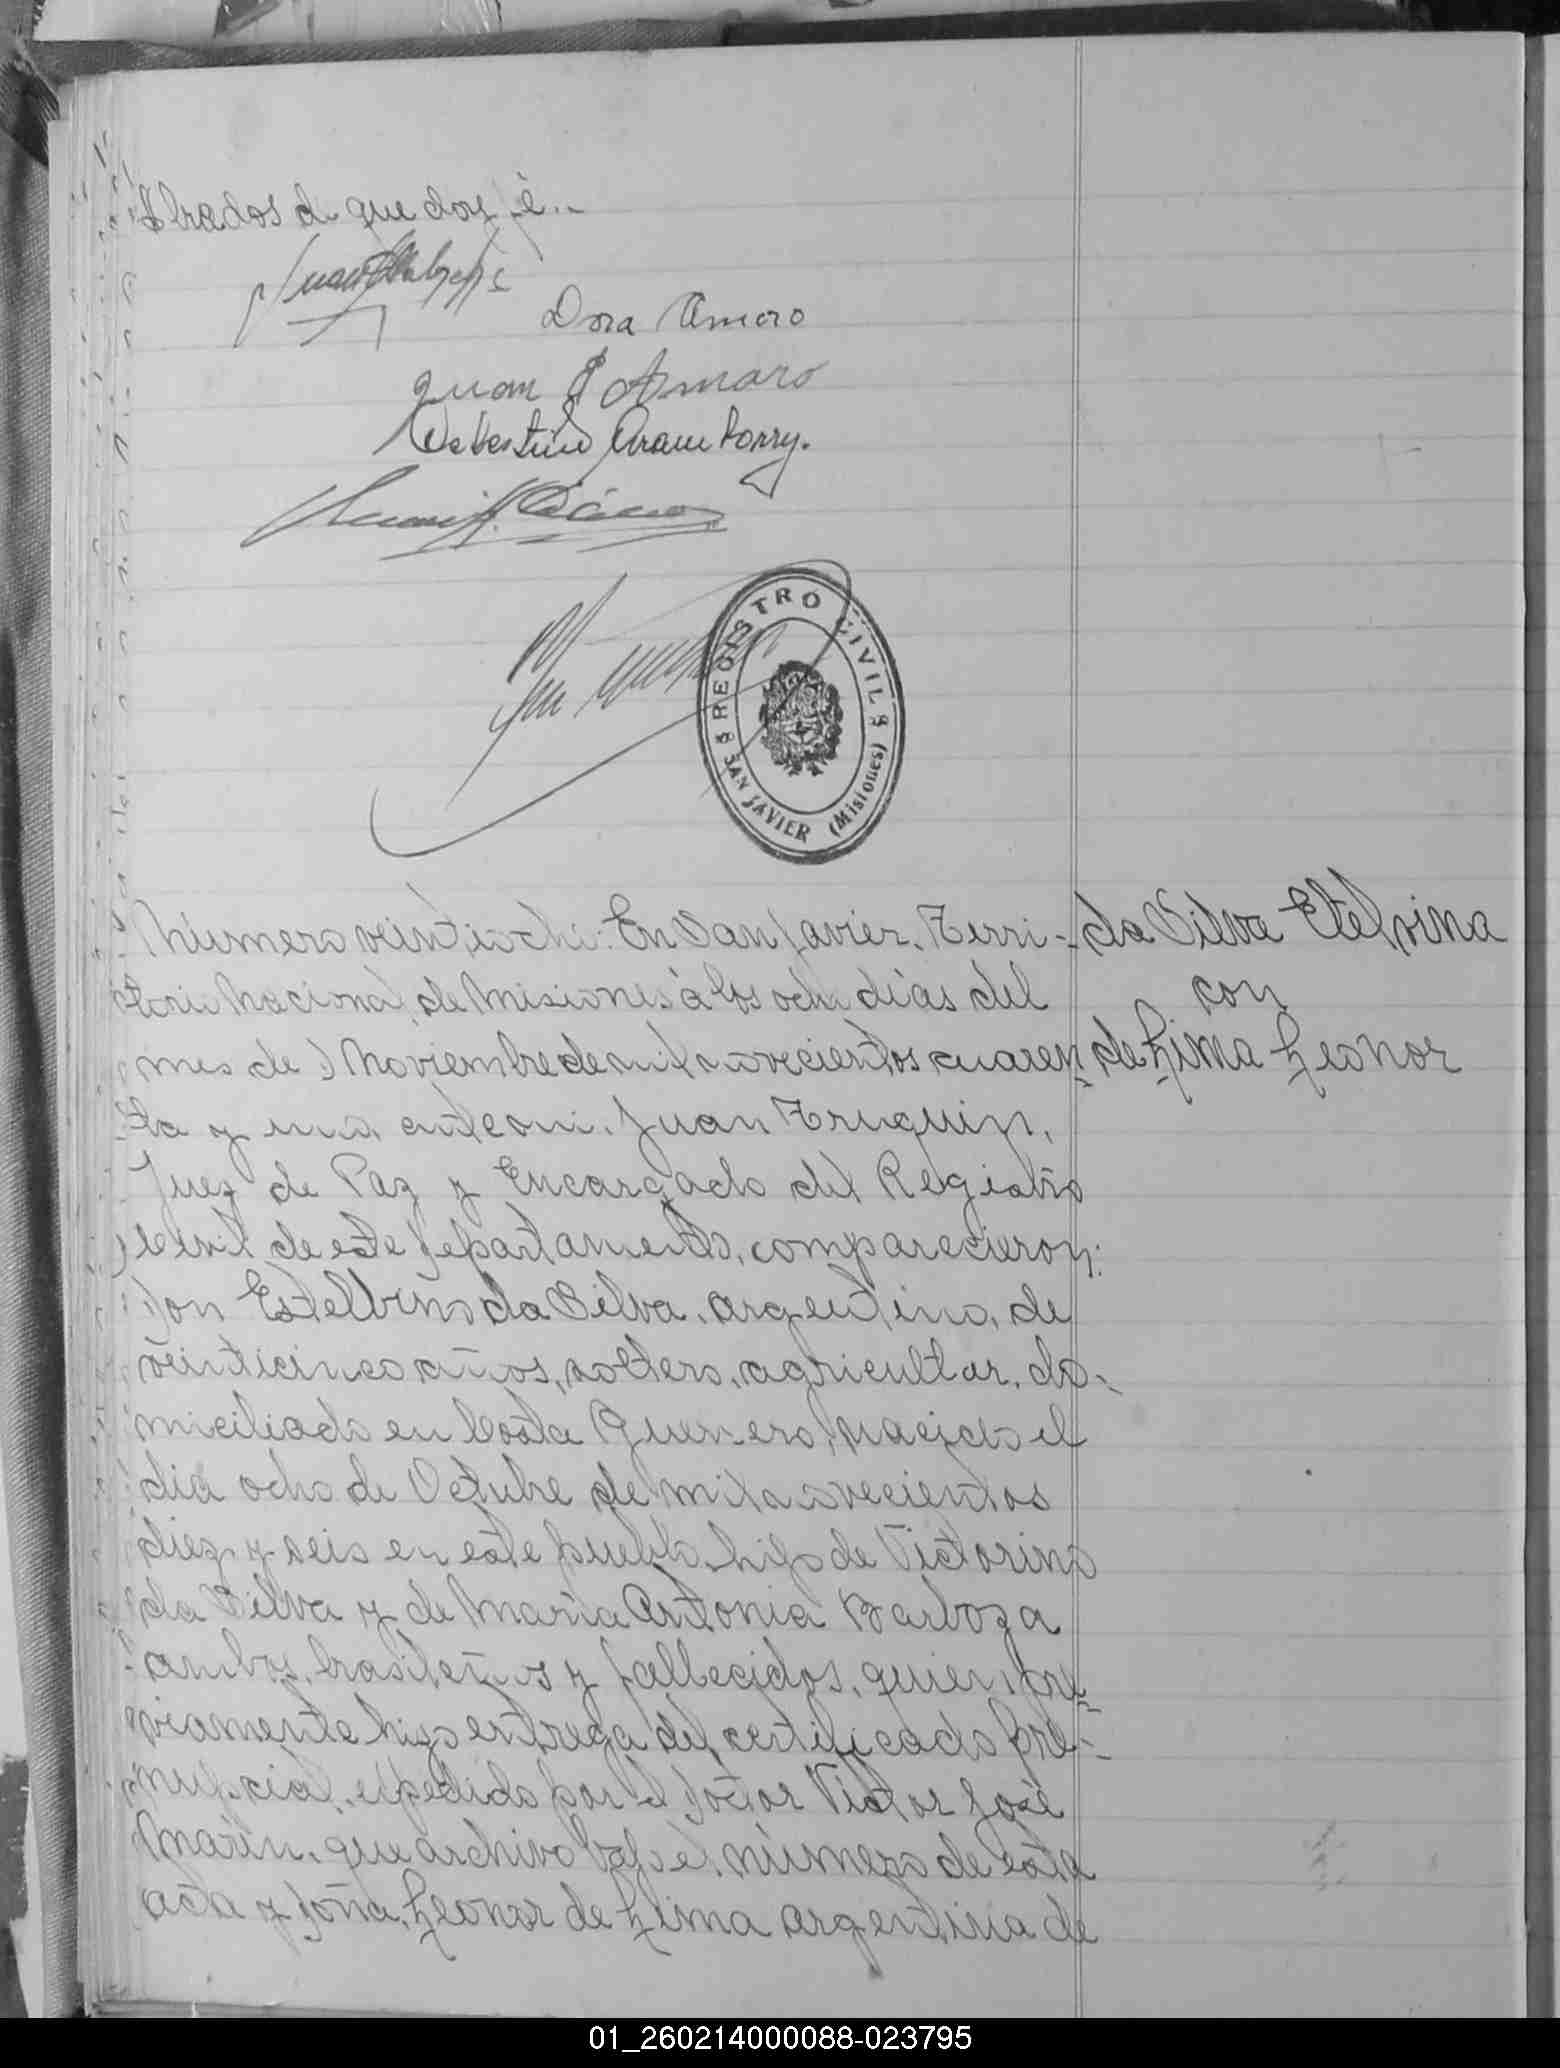 brados de que doy fé..
Dora Amaro
Juan P Amaro
Celestino Aramborry.
REGISTRO CIVIL
SAN JAVIER (Misiones)
Número veintiocho: En San Javier, Terri-
torio Nacional de Misiones á los ocho dias del
mes de Noviembre de mil novecientos cuaren-
ta y uno, ante mi, Juan Truquin,
Juez de Paz y Encargado del Registro
Civil de este departamento, comparecieron:
don Estelbino da Silva, argentino, de
veinticinco años, soltero, agricultor, do-
miciliado en Costa Guerrero, nacido el
dia ocho de Octubre de mil novecientos
diez y seis en este pueblo, hijo de Victorino
da Silva y de María Antonia Barboza
ambos brasileños y fallecidos, quien pre-
viamente hizo entrega del certificado pre-
nupcial, expedido por el doctor Victor José
Marin, que archivo bajo el número de esta
acta y doña Leonor de Lima argentina de
da Silva Etelvina
con
de Lima Leonor
01_260214000088-023795